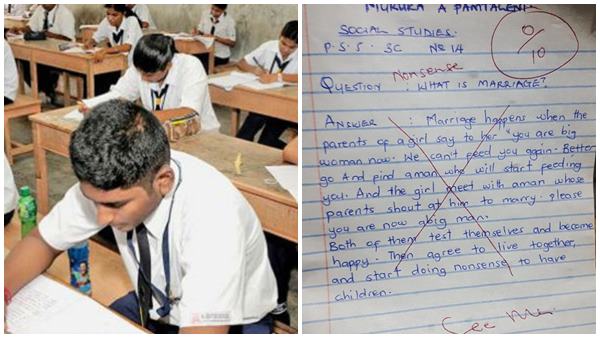 MUKUKA A
SOCIAL STUDIES.
P.S.S. 3C No 14
0/10
Nonsense
QUESTION : WHAT IS MARRIAGE?
ANSWER : Marriage happens when the
parents of a girl say to her "you are big
woman now. We can't feed you again. Better
go And find aman who will start feeding
you. And the girl meet with aman whose
parents shout at him to marry. Please
you are now abig man.
Both of them test themselves and become
happy. Then agree to live together,
and start doing nonsense to have
children.
See Me